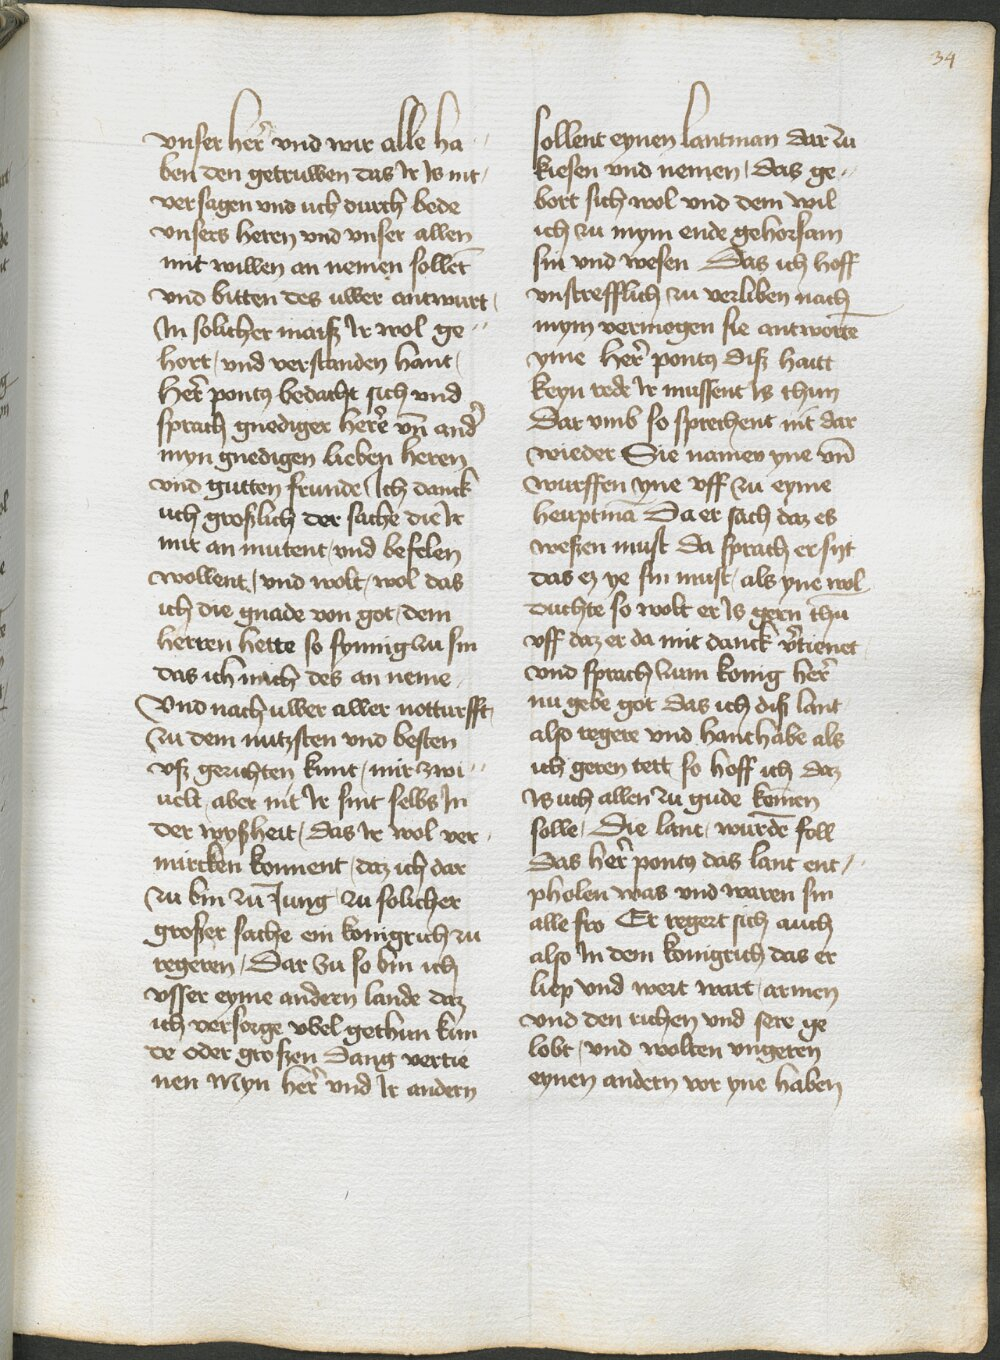 34
vnser her̃ vnd wir alle ha
ben den getruwen das Ir Is nit
versagen vnd uch durch bede
vnsers heren vnd vnser allen
mit willen an nemen sollet̃
vnd bitten des uwer antwurt
In solicher maiß Ir wol ge
hort / vnd verstanden hant /
Her̃ pontꝫ bedacht sich vnd
sprach gnediger her̃e vñ and̾
myn gnedigen lieben heren
vnd gutten frunde / Ich danck
uch großlich der sache die Ir
mir an mutent / vnd befelen
wollent / vnd wolt / wol das
ich die gnade von got / dem
herren hette so synnig zu sin
das ich mich des an neme /
Vnd nach uwer aller notturfft
zu dem nutzsten vnd besten
vß gerichten kunt / mir zwi
uelt / aber nit Ir sint selbs In
der wyßheit / Das Ir wol ver
mircken konnent / daz ich dar
zu bin zũ Jung / zu solicher
großer sache ein konigrich zu
regeren / Dar zu so bin ich
vsser eyme andern lande daz
ich versorge vbel gethun kun
de oder großen Dang vertie
nen Myn her̃ vnd Ir andern
sollent eynen lantman dar zu
kiesen vnd nemen / das ge
bort sich wol vnd dem wil
ich zu mym ende gehorsam
sin vnd wesen Das ich hoff
vnstrefflich zu verliben nach
mym vermogen sie antwortẽ
yme her̃ pontꝫ diß haitt
keyn rede Ir mussent Is thun
Dar vmb so sprechent nit dar
wieder Sie namen yne vñ
wurffen yne vff zu eyme
heuptmã Da er sach daz es
weßen must Da sprach er syt
das eꝫ ye sin must / als yne wol
duchte so wolt er Is gern thũ
vff daz er da mit danck v̾tienet
vnd sprach zum konig her̃
nu gebe got das ich diß lant
also regere vnd hanthabe als
ich geren tett so hoff ich daz
Is uch allen zu gude kom̃en
solle / Die lant / wurdẽ foll
Das her̃ pontꝫ das lant ent /
pholen was vnd waren sin
alle fro Er regert sich auch
also In dem konigrich das er
liep vnd wert wart / armen
vnd den richen vnd sere ge
lobt / vnd wolten vngeren
eynen andern vor yne haben